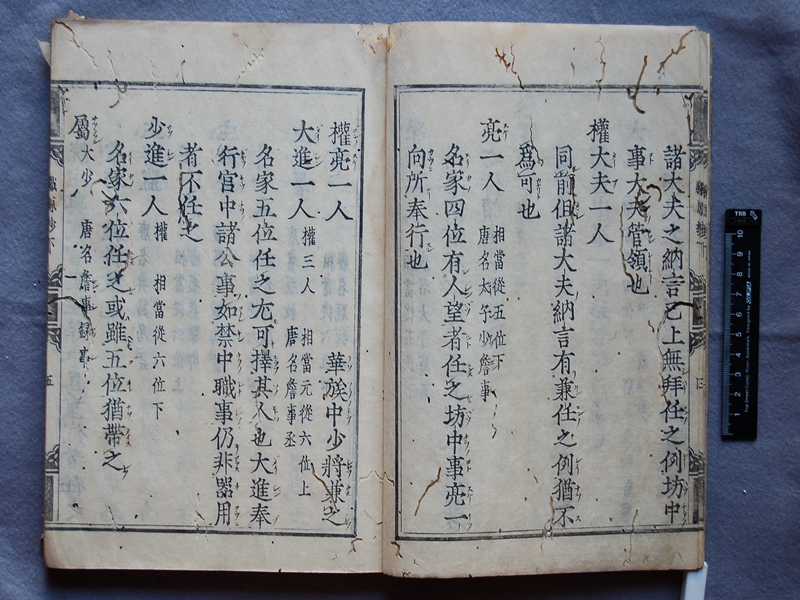 諸大夫之納言已上無拜任之例坊中
事大夫管領也
權大夫一人
同前但諸大夫納言有兼任之例猶不
爲可也
亮一人 相當從五位下
唐名太子少詹事
名家四位有人望者任之坊中事亮一
向所奉行也
權亮一人 華族中少將兼之
大進一人 權三人 相當元從六位上
唐名詹事丞
名家五位任之尤可擇其人也大進奉
行官中諸公事如禁中職事仍非器用
者不任之
少進一人 權 相當從六位下
名家六位任之或雖五位猶帶之
屬 大少 唐名詹事録事
五